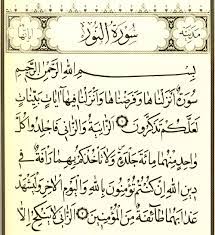 سُورَةُ النُّورِ
بِسْمِ اللَّهِ الرَّحْمَنِ الرَّحِيمِ
سُورَةٌ أَنْزَلْنَاهَا وَفَرَضْنَاهَا وَأَنْزَلْنَا فِيهَا آيَاتٍ بَيِّنَاتٍ
لَعَلَّكُمْ تَذَكَّرُونَ ۝ الزَّانِيَةُ وَالزَّانِي فَاجْلِدُوا كُلَّ
وَاحِدٍ مِنْهُمَا مِائَةَ جَلْدَةٍ وَلَا تَأْخُذْكُمْ بِهِمَا رَأْفَةٌ فِي
دِينِ اللَّهِ إِنْ كُنْتُمْ تُؤْمِنُونَ بِاللَّهِ وَالْيَوْمِ الْآخِرِ وَلْيَشْهَدْ
عَذَابَهُمَا طَائِفَةٌ مِنَ الْمُؤْمِنِينَ ۝ الزَّانِي لَا يَنْكِحُ إِلَّا